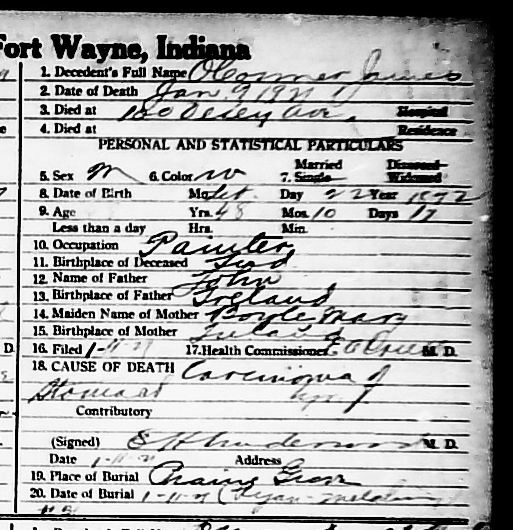 Fort Wayne, Indiana
1. Decedent's Full Name O'Connor James
2. Date of Death Jan. 9, 1921
3. Died at Ave. Hospital
4. Died at Residence
PERSONAL AND STATISTICAL PARTICULARS
Married Divorced
5. Sex M 6. Color W 7. Single Widowed
8. Date of Birth Mo. Day 22 Year 1872
9. Age Yrs. 48 Mos. 10 Days 17
Less than a day Hrs. Min.
10. Occupation Painter
11. Birthplace of Deceased Ind
12. Name of Father John
13. Birthplace of Father Ireland
14. Maiden Name of Mother Boyle Mary
15. Birthplace of Mother Ireland
16. Filed 1-11-21 17. Health Commissioner M. D.
18. CAUSE OF DEATH Carcinoma of
Stomach
Contributory
(Signed) M. D.
Date 1-11-21 Address
19. Place of Burial Prairie Grove
20. Date of Burial 1-11-21